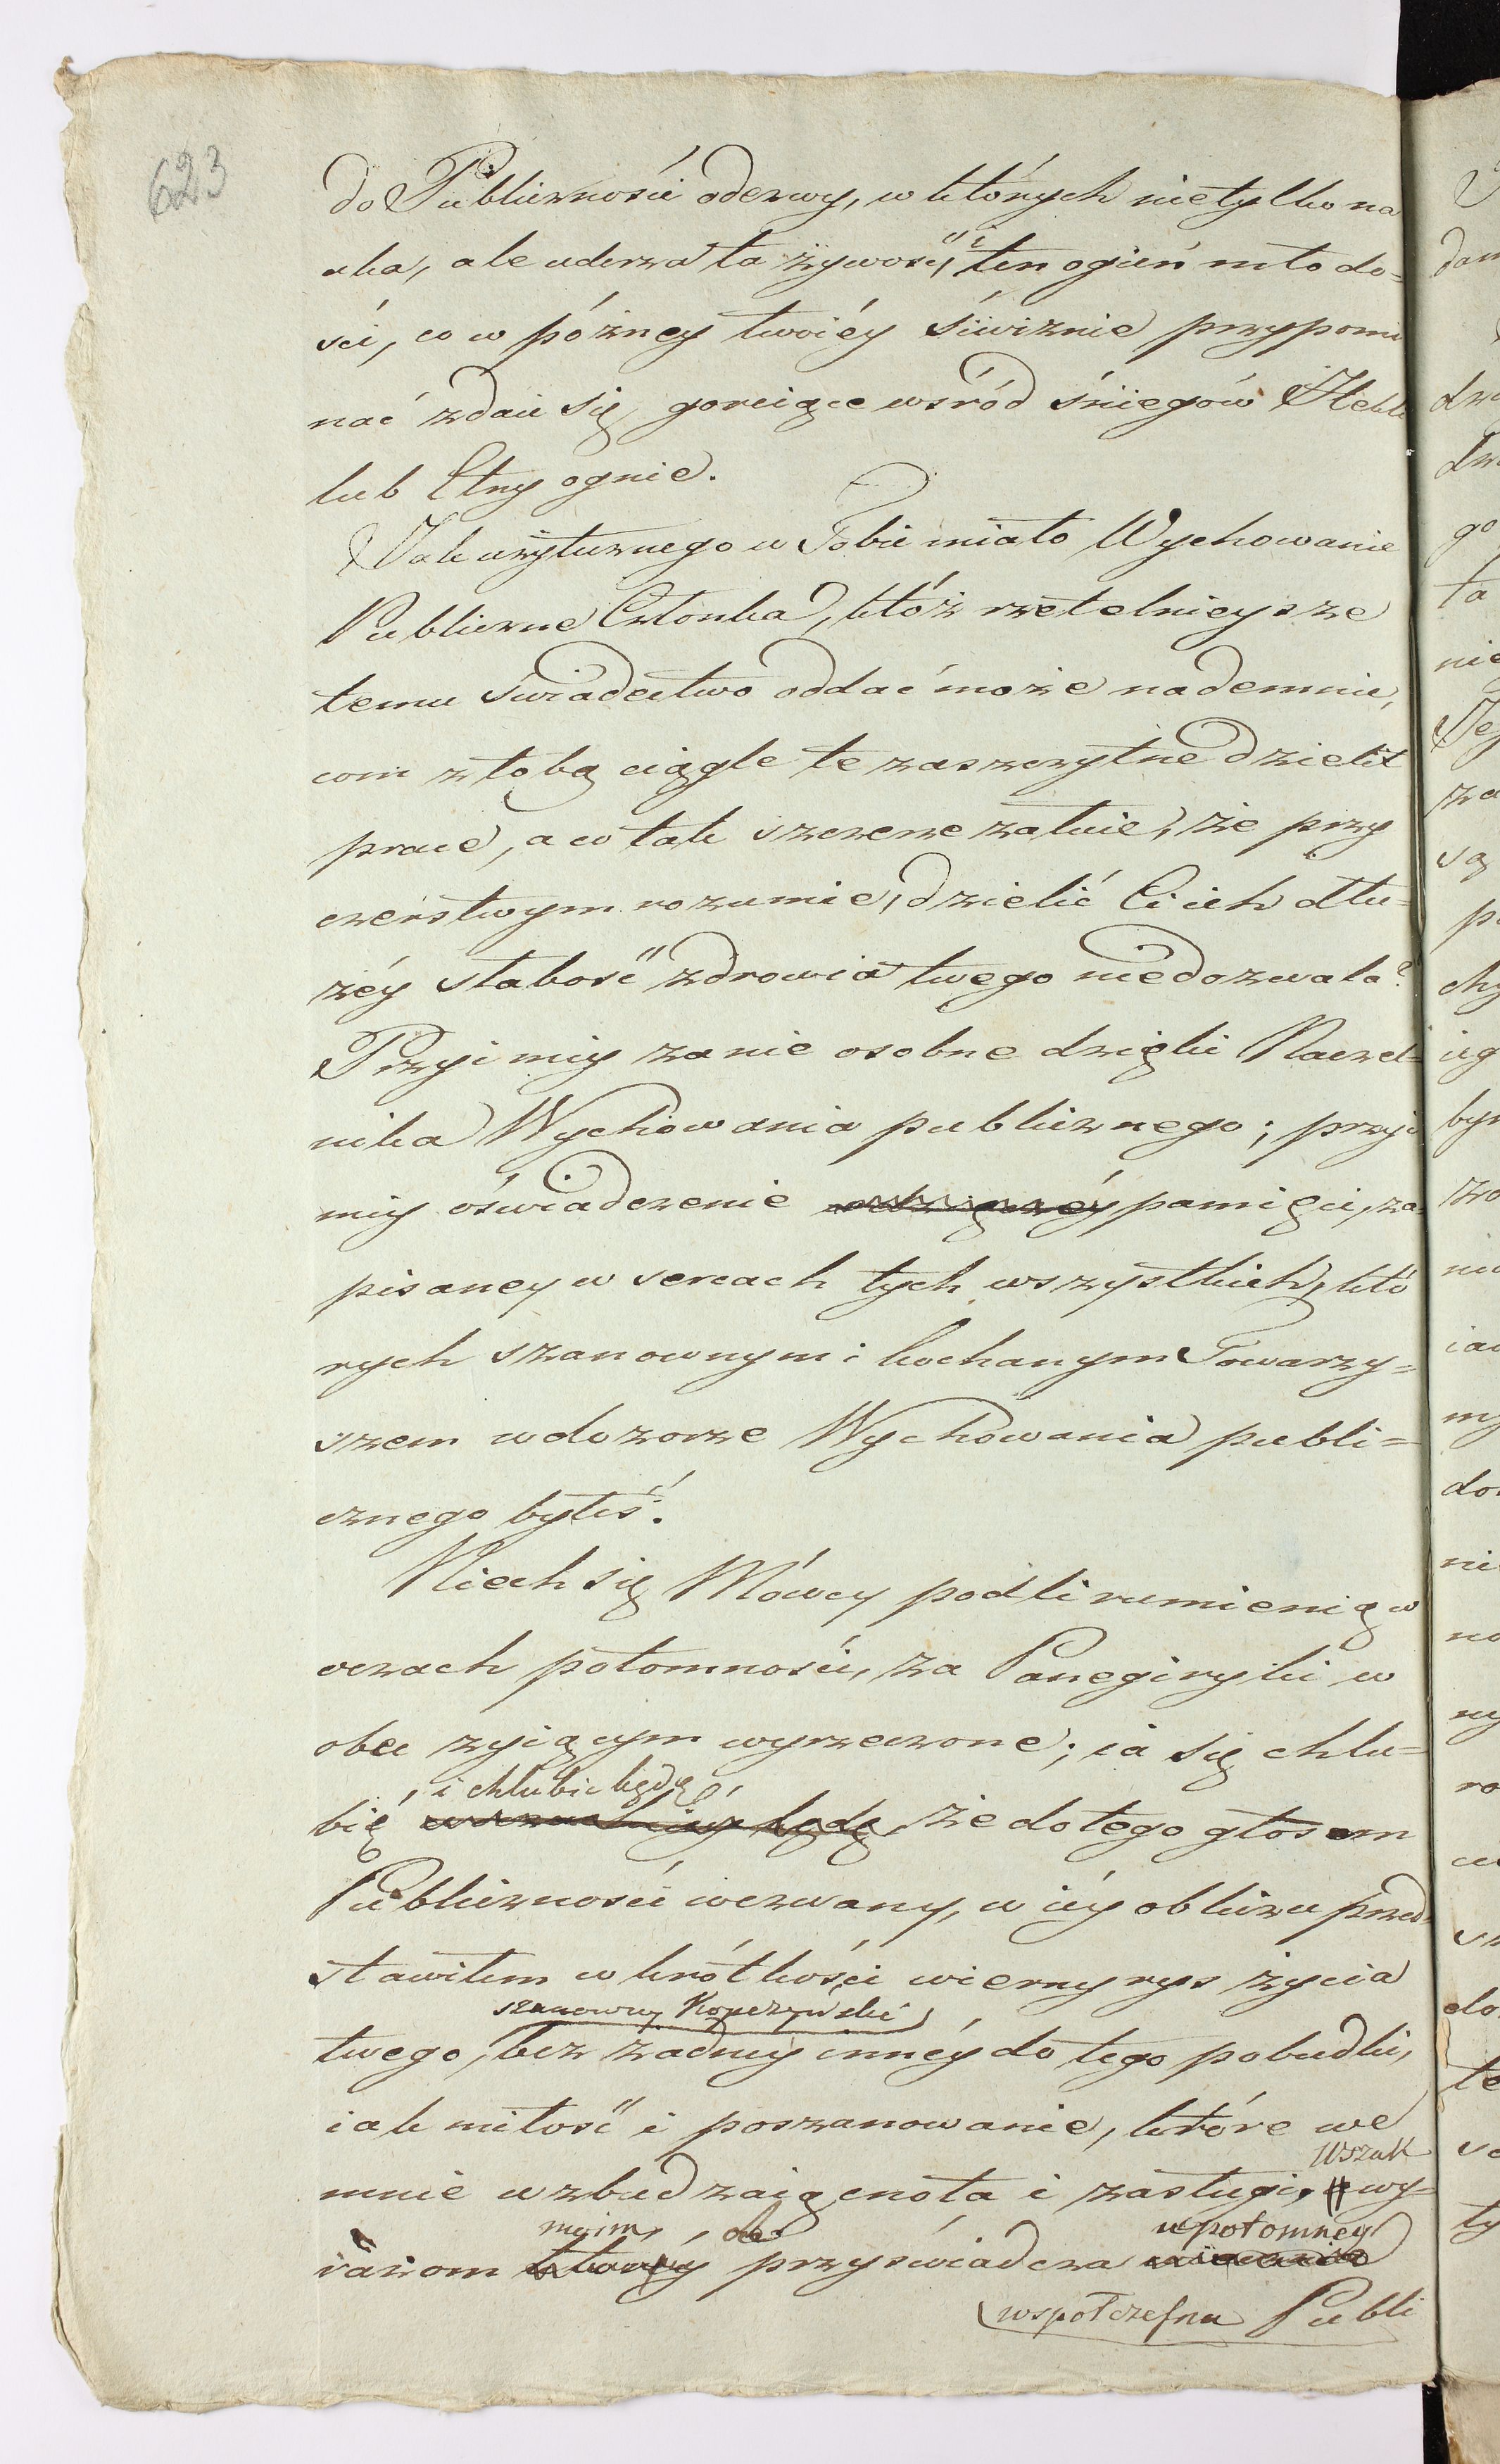 623
do Publicznosci odezwy, w których nietylko na
uka, ale uderza ta żywość, i ten ogień młodo=
ści, co w późney twoiéy śiwiznie przypomi
nać zdaie się, goreiące wśród śniegów Hekli
lub Etny ognie.
Jak użytecznego w Tobie miało Wychowanie
Publiczne Członka, któż rzetelnieysze
temu świadectwo oddać może nademnie,
com z tobą ciągle te zaszczytne dzielił
prace, a co tak szczerze żałuie, że przy
czerstwym rozumie, dzielić Ci ich dłu=
żéy słabość zdrowia twego niedozwala?
Przyimiy za nie osobne dzięki Naczel=
nika Wychowania publicznego; przyi
miy oświadczenie pamięci, za=
pisaney w sercach tych wszystkich, któ
rych szanownym i kochanym Towarzy=
szem w dozorze Wychowania publi=
cznego byłeś.
Niech się Mówcy podli rumienią w
oczach potomności, za Panegiryki w
obec żyiącym wyrzeczone; ia się chlu=
i chlubić będę
bię że do tego głosem
Publiczności wezwany, w iéy obliczu przed=
stawiłem w krótkości wierny rys życia
szanowny Kopczyński
twego, bez żadney innéy do tego pobudki,
iak miłość i poszanowanie, które we
Wszak
mnie wzbudzaią cnota i zasługi, wy=
moim w potomney
razom przyświadcza
współczesna Publi